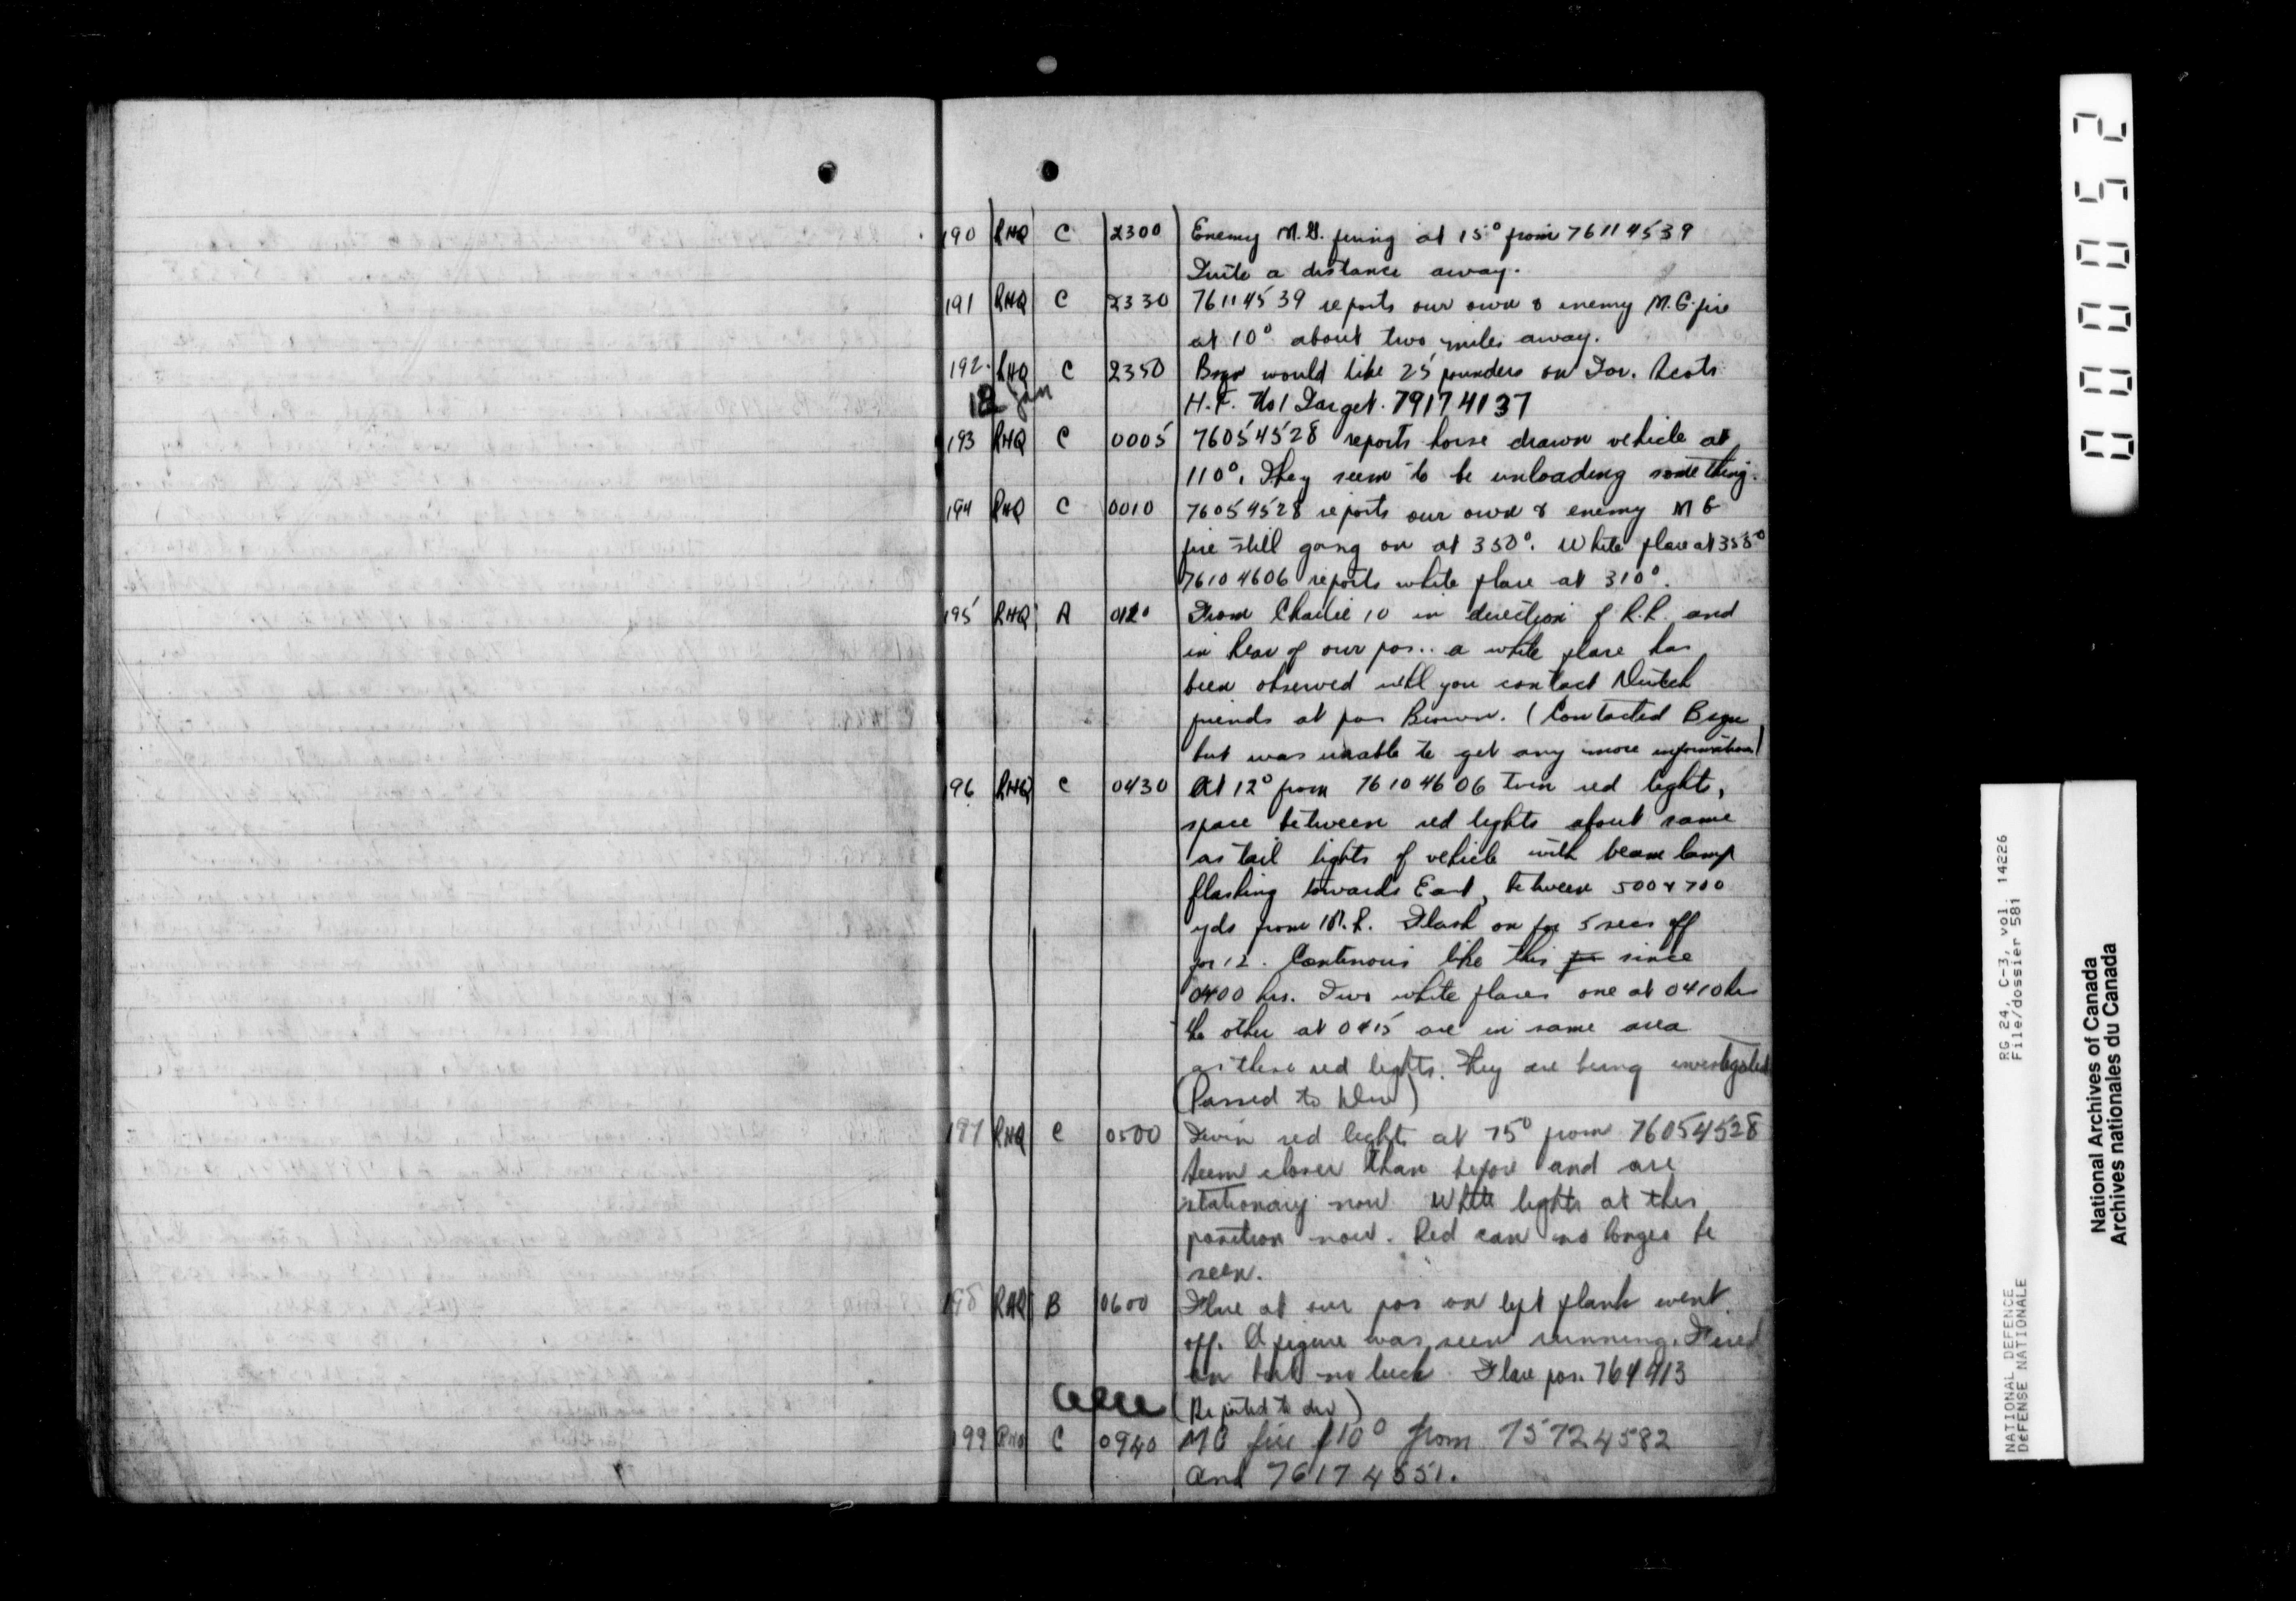 190 RHQ C 2300 Enemy M.G. firing at 15° from 76114539
Quite a distance away.
191 RHQ C 2330 76114539 reports our own & enemy M.G. fire
at 10° about two miles away.
192. RHQ C 2350 Bgde would like 25 pounders on Tor. Scots
18 Jan H.F. No 1 Target. 79174137
193 RHQ C 0005 76054528 reports horse drawn vehicle at
110°. They seem to be unloading something.
194 RHQ C 0010 76054528 reports our own & enemy M G
fire still going on at 350°. White flare at 355°
76104606 reports white flare at 310°.
195 RHQ A 0120 From Charlie 10 in direction of R.R. and
in rear of our pos.. a white flare has
been observed will you contact Dutch
friends at pos Brown. (Contacted Bgde
but was unable to get any more information)
196 RHQ C 0430 At 12° from 76104606 twin red lights,
space between red lights about same
as tail lights of vehicle with beam lamp
flashing towards East, between 500 & 700
yds from M.R. Flash on for 5 secs off
for 12. Continous like this for since
0400 hrs. Two white flares one at 0410 hrs
the other at 0415 are in same area
as these red lights. They are being investigated
(Passed to Div)
197 RHQ C 0500 Twin red lights at 75° from 76054528
seem closer than before and are
stationary now. White lights at this
position now. Red can no longer be
seen.
198 RHQ B 0600 Flare at our pos on left flank went
off. A figure was seen running. Fired
on but no luck. Flare pos. 764413
(Reported to div)
199 RHQ C 0940 MG fire f 10° from 75724582
and 76174551.
0000052
RG 24, C-3, vol. 14226
File/dossier 581
NATIONAL DEFENCE
DÉFENSE NATIONALE
National Archives of Canada
Archives nationales du Canada